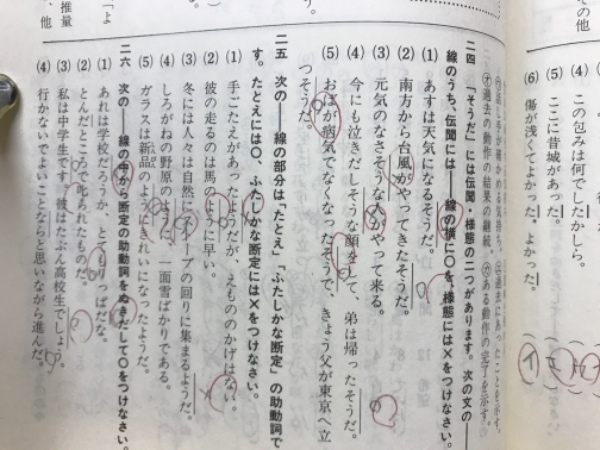 その他
(4)
この包みは何でしたかしら。
(5)
ここに昔城があった。
(6)
傷が浅くてよかった。よかった。
推量
他
二四 「そうだ」には伝聞・様態の二つがあります。次の文の――
線のうち、伝聞には――線の横に○を、様態には×をつけなさい。
(1) あすは天気になるそうだ。
(2) 南方から台風がやってきたそうだ。
(3) 元気のなさそうな人がやって来る。
(4) 今にも泣きだしそうな顔をして、弟は帰ったそうだ。
(5) おばが病気でなくなったそうで、きょう父が東京へ立
つそうだ。
二五 次の――線の部分は「たとえ」「ふたしかな断定」の助動詞で
す。たとえには○、ふたしかな断定には×をつけなさい。
(1) 手ごたえがあったようだが、えもののかげはない。
(2) 彼の走るのは馬のように早い。
(3) 冬には人々は自然にストーブの回りに集まるようだ。
(4) しろがねの野原のように、一面雪ばかりである。
(5) ガラスは新品のようにきれいになったようだ。
二六 次の――線の中から断定の助動詞をぬきだして○をつけなさい。
(1) あれは学校だろうか、とてもりっぱだな。
(2) とんだところで叱られたものだ。
(3) 私は中学生です。彼はたぶん高校生でしょ
(4) 行かないでよいことならと思いながら進んだ。